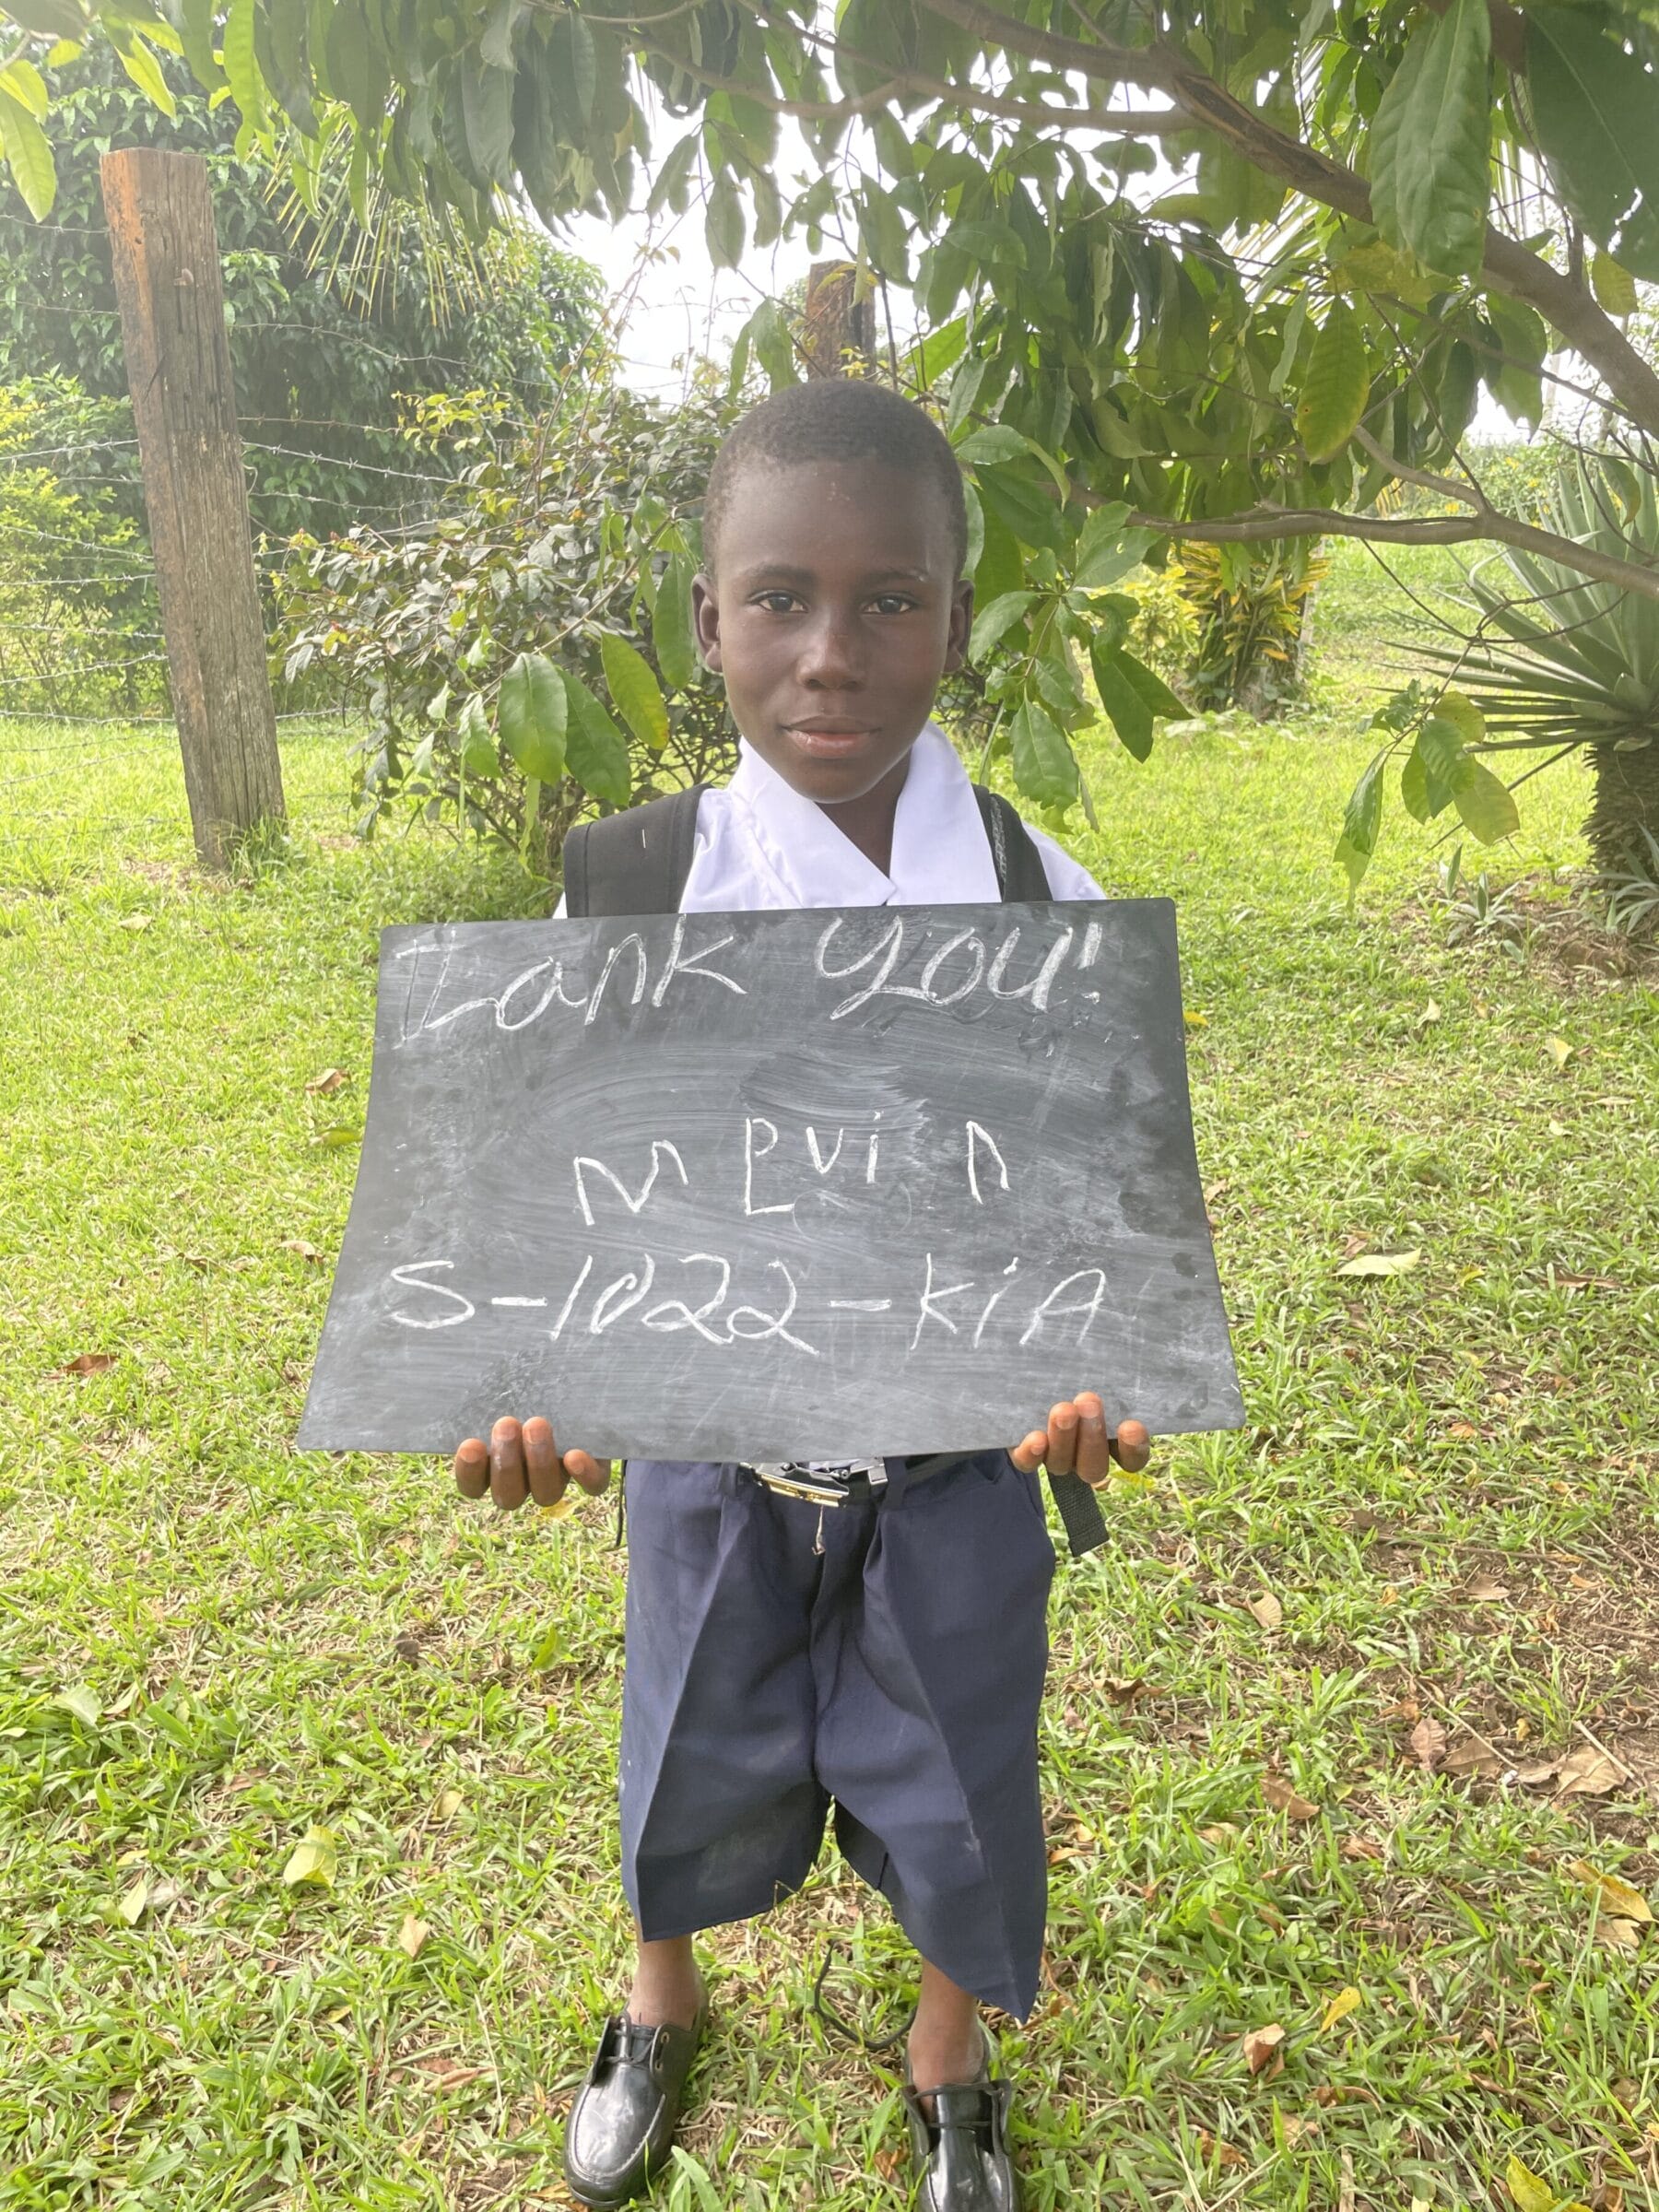 Thank You!
Melvin
S-1022-KiA